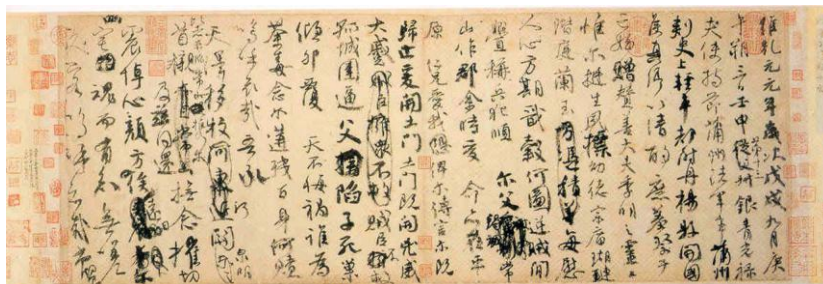 維乾元元年歲次戊戌九月庚
午朔三日壬申第十三從父叔銀青光祿
夫使持節蒲州諸軍事蒲州
刺史上輕車都尉丹楊縣開國
侯真卿以清酌庶羞祭于
亡姪贈贊善大夫季明之靈曰
惟爾挺生夙標幼德宗廟瑚璉
階庭蘭玉方憑積善每慰
人心方期戩穀何圖逆賊間
釁稱兵犯順爾父竭誠常
山作郡余時受命亦在平
原仁兄愛我俾爾傳言爾既
歸止爰開土門土門既開凶威
大蹙賊臣擁眾不救
孤城圍逼父陷子死巢
傾卵覆天不悔禍誰為
荼毒念爾遘殘百身何贖
嗚乎哀哉吾承
天澤移牧河關泉明
比者再陷常山攜爾
首櫬及茲同還撫念摧切
震悼心顏方俟遠日
卜爾幽宅魂而有知無嗟
久客嗚呼哀哉尚饗